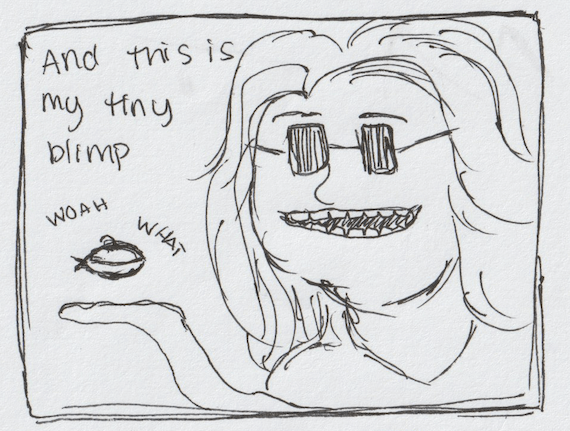 And this is
my tiny
blimp
WOAH
WHAT